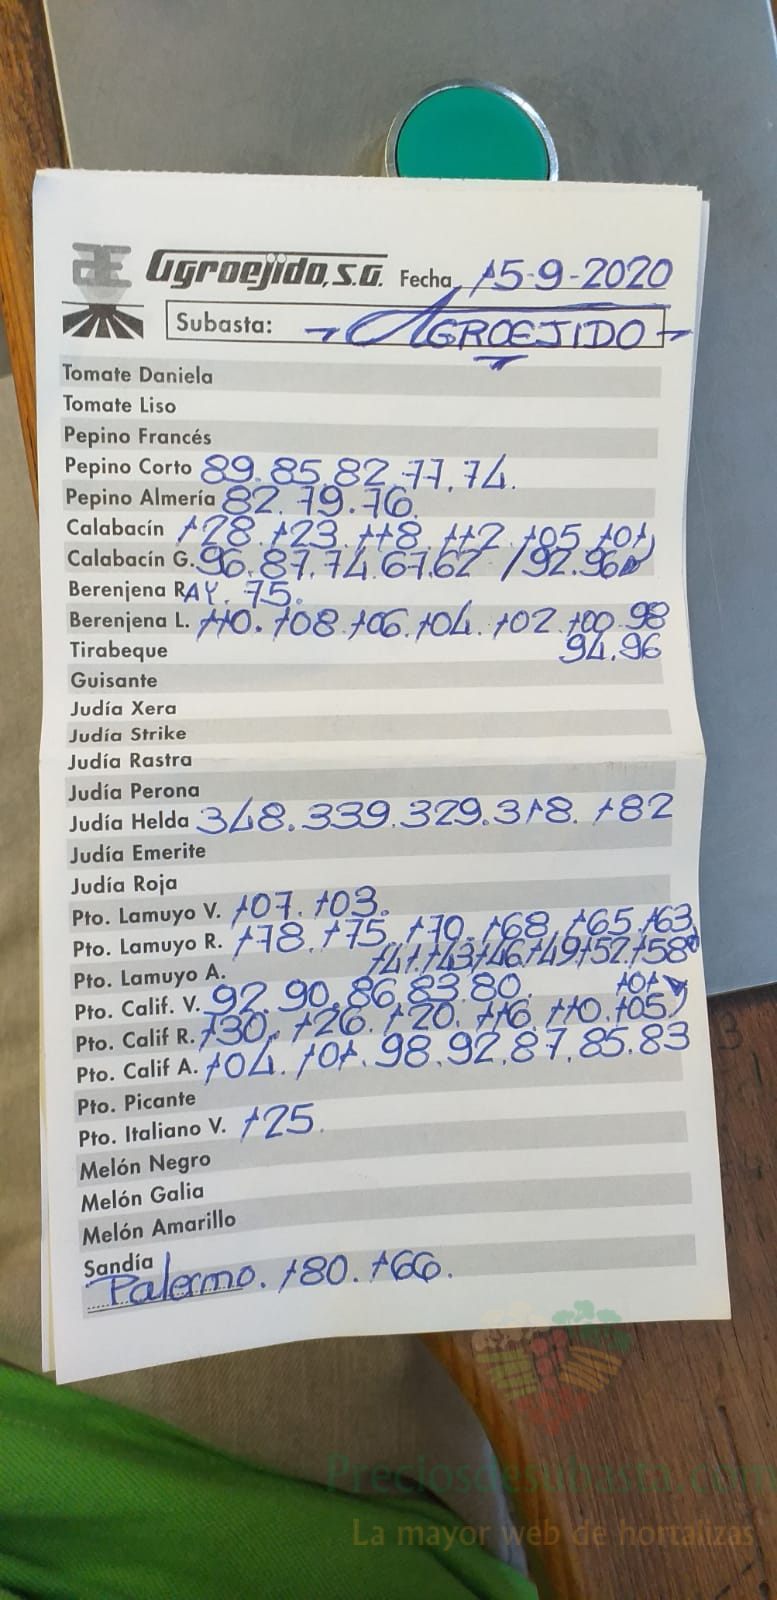 Agroejido, S.A. Fecha 15-9-2020
Subasta: AGROEJIDO
Tomate Daniela
Tomate Liso
Pepino Francés
Pepino Corto 89. 85. 82. 77. 74.
Pepino Almería 82. 79. 76.
Calabacín 128. 123. 118. 112. 105. 101
Calabacín G. 96. 87. 74. 67. 62 / 92. 96
Berenjena RAY. 75.
Berenjena L. 110. 108. 106. 104. 102. 100. 98
94. 96
Tirabeque
Guisante
Judía Xera
Judía Strike
Judía Rastra
Judía Perona
Judía Helda 348. 339. 329. 318. 182
Judía Emerite
Judía Roja
Pto. Lamuyo V. 107. 103.
Pto. Lamuyo R. 178. 175. 170. 168. 165. 163
141. 143. 146. 149. 152. 158
Pto. Lamuyo A.
Pto. Calif. V. 92. 90. 86. 83. 80.
101
Pto. Calif R. 130. 126. 120. 116. 110. 105
Pto. Calif A. 104. 101. 98. 92. 87. 85. 83
Pto. Picante
Pto. Italiano V. 125.
Melón Negro
Melón Galia
Melón Amarillo
Sandía
Palermo. 180. 166.
Preciosdesubasta.com
La mayor web de hortalizas